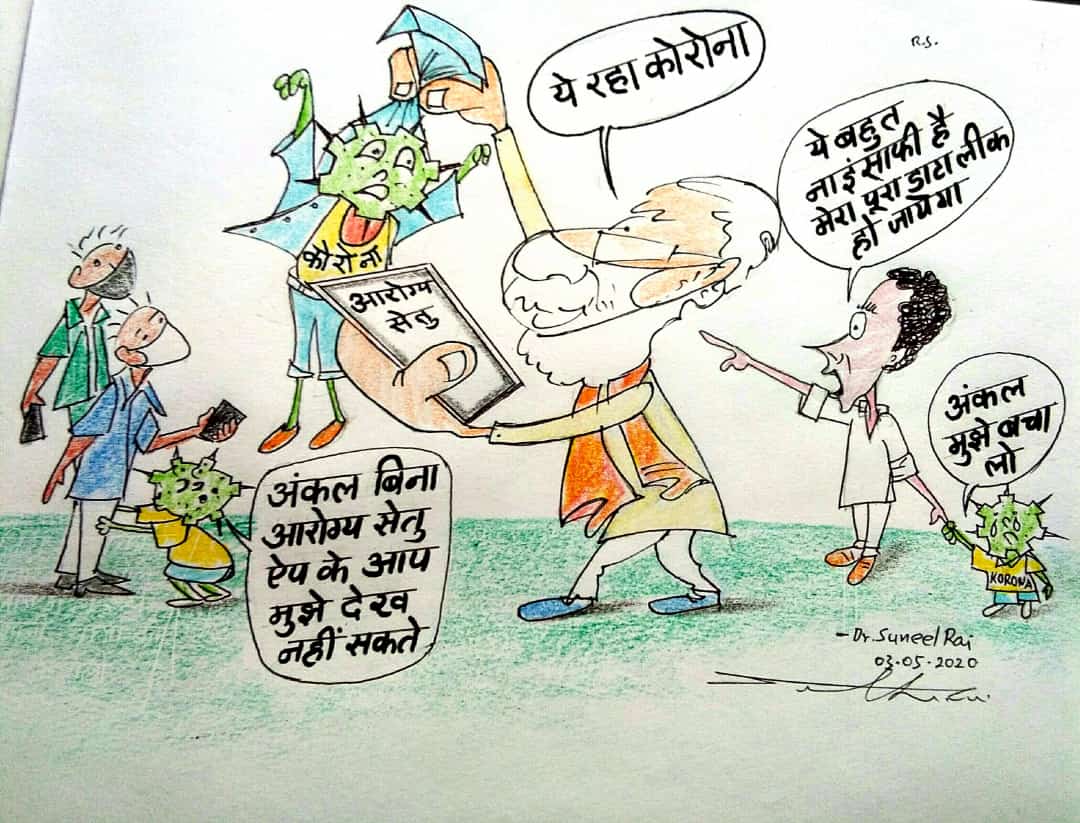 R.S.
ये रहा कोरोना
ये बहुत
नाइंसाफी है
मेरा पूरा डाटा लीक
हो जायेगा
कोरोना
आरोग्य
सेतु
अंकल
मुझे बचा
लो
KORONA
अंकल बिना
आरोग्य सेतु
ऐप के आप
मुझे देख
नहीं सकते
- Dr. Suneel Rai
03.05.2020